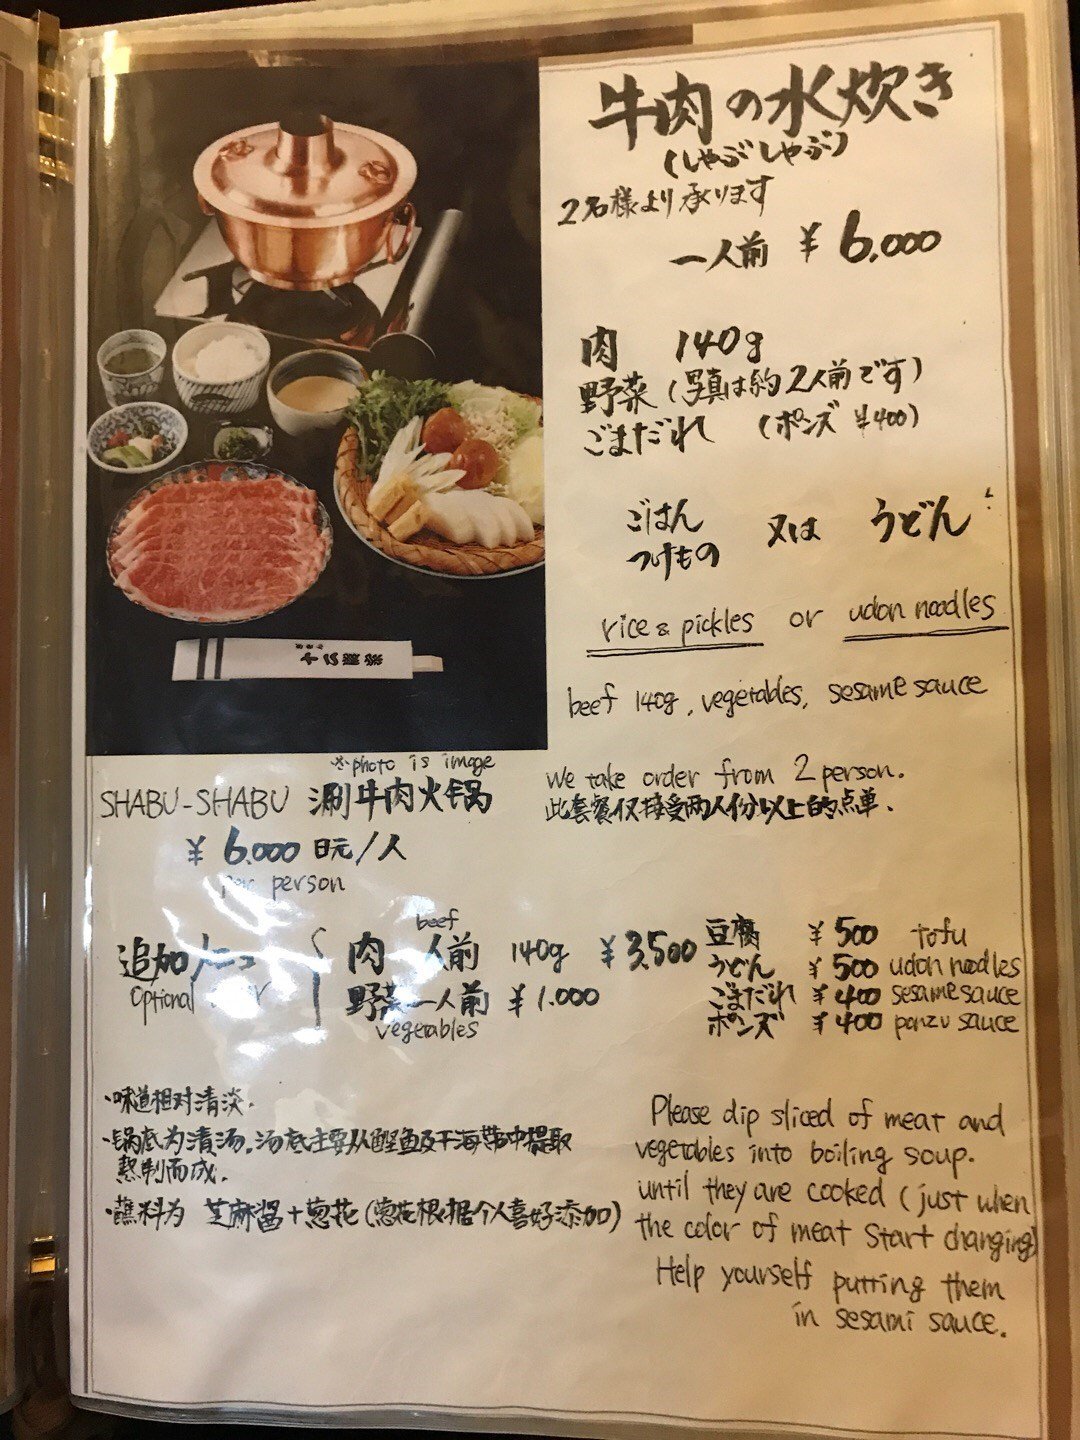 牛肉の水炊き
(しゃぶしゃぶ)
2名様より承ります
一人前 ¥6,000
肉 140g
野菜(写真は約2人前です)
ごまだれ (ポンズ ¥400)
ごはん 又は うどん
つけもの
rice & pickles or udon noodles
beef 140g, vegetables, sesame sauce
※photo is image
SHABU-SHABU 涮牛肉火锅
¥6,000日元/人
per person
we take order from 2 person.
此套餐仅接受两人份以上的点单.
追加メニュー
Optional
beef
肉 一人前 140g ¥3,500
野菜 一人前 ¥1,000
vegetables
豆腐 ¥500 tofu
うどん ¥500 udon noodles
ごまだれ ¥400 sesame sauce
ポンズ ¥400 ponzu sauce
·味道相对清淡.
·锅底为清汤.汤底主要从鲣鱼及干海带中提取
熬制而成.
·蘸料为 芝麻酱+葱花(葱花根据个人喜好添加)
Please dip sliced of meat and
vegetables into boiling soup.
until they are cooked (just when
the color of meat start changing)
Help yourself putting them
in sesami sauce.